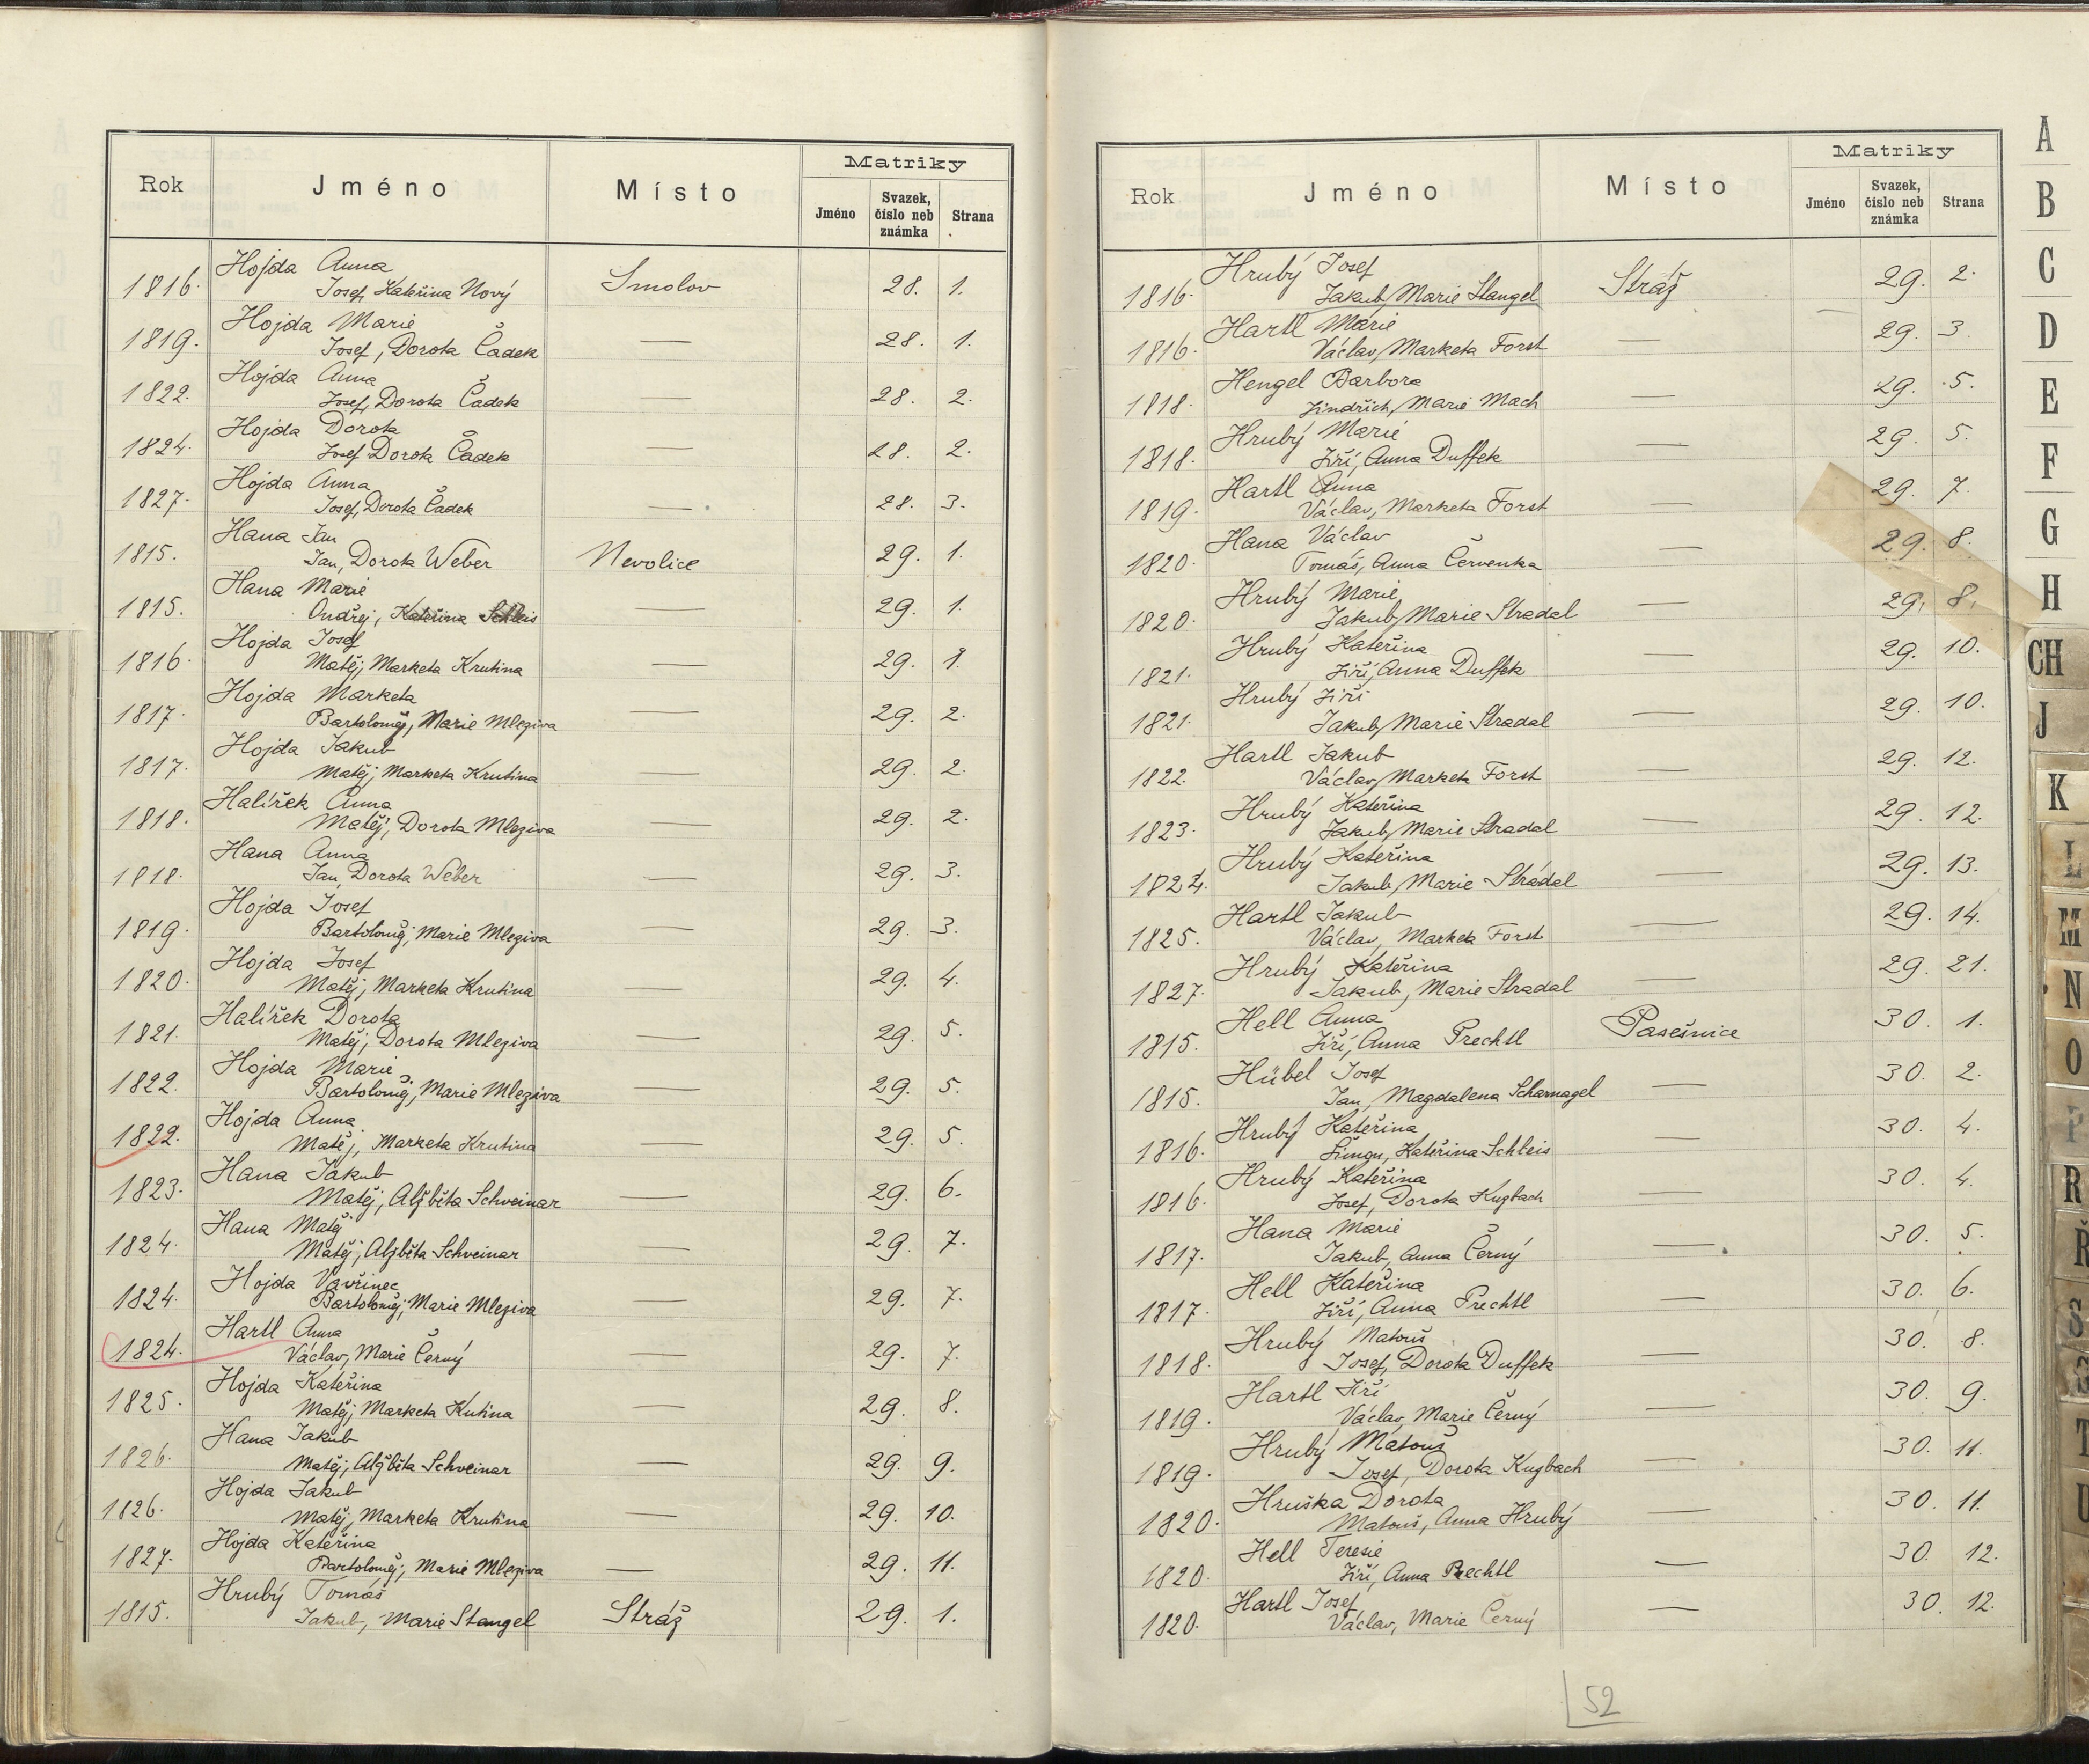 Rok Jméno Místo Matriky
Jméno Svazek, číslo neb známka Strana
1816. Hojda Anna
Josef, Kateřina Nový Smolov 28. 1.
1819. Hojda Marie
Josef, Dorota Čadek — 28. 1.
1822. Hojda Anna
Josef, Dorota Čadek — 28. 2.
1824. Hojda Dorota
Josef Dorota Čadek — 28. 2.
1827. Hojda Anna
Josef, Dorota Čadek — 28. 3.
1815. Hana Jan
Jan, Dorota Weber Nevolice 29. 1.
1815. Hana Marie
Ondřej, Kateřina Schleis — 29. 1.
1816. Hojda Josef
Matěj, Marketa Krutina — 29. 1.
1817. Hojda Marketa
Bartoloměj, Marie Mleziva — 29. 2.
1817. Hojda Jakub
Matěj, Marketa Krutina — 29. 2.
1818. Halířek Anna
Matěj, Dorota Mleziva — 29. 2.
1818. Hana Anna
Jan, Dorota Weber — 29. 3.
1819. Hojda Josef
Bartoloměj, Marie Mleziva — 29. 3.
1820. Hojda Josef
Matěj, Marketa Krutina — 29. 4.
1821. Halířek Dorota
Matěj, Dorota Mleziva — 29. 5.
1822. Hojda Marie
Bartoloměj, Marie Mleziva — 29. 5.
1822. Hojda Anna
Matěj, Marketa Krutina — 29. 5.
1823. Hana Jakub
Matěj, Alžběta Schweinar — 29. 6.
1824. Hana Matěj
Matěj, Alžběta Schveinar — 29. 7.
1824. Hojda Vavřinec
Bartoloměj, Marie Mleziva — 29. 7.
1824. Hartl Anna
Václav, Marie Černý — 29. 7.
1825. Hojda Kateřina
Matěj, Marketa Kutina — 29. 8.
1826. Hana Jakub
Matěj, Alžběta Schveinar — 29. 9.
1826. Hojda Jakub
Matěj, Marketa Krutina — 29. 10.
1827. Hojda Kateřina
Bartoloměj, Marie Mleziva — 29. 11.
1815. Hrubý Tomáš
Jakub, Marie Stangel Stráž 29. 1.
Rok Jméno Místo Matriky
Jméno Svazek, číslo neb známka Strana
1816. Hrubý Josef
Jakub, Marie Stangel Stráž 29. 2.
1816. Hartl Marie
Václav, Marketa Forst — 29. 3.
1818. Hengel Barbora
Jindřich, Marie Mach — 29. 5.
1818. Hrubý Marie
Jiří, Anna Duffek — 29. 5.
1819. Hartl Anna
Václav, Marketa Forst — 29. 7.
1820. Hana Václav
Tomáš, Anna Červenka — 29. 8.
1820. Hrubý Marie
Jakub, Marie Stradal — 29. 8.
1821. Hrubý Kateřina
Jiří, Anna Duffek — 29. 10.
1821. Hrubý Jiří
Jakub, Marie Stradal — 29. 10.
1822. Hartl Jakub
Václav, Marketa Forst — 29. 12.
1823. Hrubý Kateřina
Jakub, Marie Stradal — 29. 12.
1824. Hrubý Kateřina
Jakub, Marie Stradal — 29. 13.
1825. Hartl Jakub
Václav, Marketa Forst — 29. 14.
1827. Hrubý Kateřina
Jakub, Marie Stradal — 29. 21.
1815. Hell Anna
Jiří, Anna Prechtl Pasešnice 30. 1.
1815. Hübel Josef
Jan, Magdalena Scharnagel — 30. 2.
1816. Hrubý Kateřina
Šimon, Kateřina Schleis — 30. 4.
1816. Hrubý Kateřina
Josef, Dorota Kugbach — 30. 4.
1817. Hana Marie
Jakub, Anna Černý — 30. 5.
1817. Hell Kateřina
Jiří, Anna Prechtl — 30. 6.
1818. Hrubý Matouš
Josef, Dorota Duffek — 30. 8.
1819. Hartl Jiří
Václav, Marie Černý — 30. 9.
1819. Hrubý Matouš
Josef, Dorota Kugbach — 30. 11.
1820. Hruška Dorota
Matouš, Anna Hrubý — 30. 11.
1820. Hell Teresie
Jiří, Anna Prechtl — 30. 12.
1820. Hartl Josef
Václav, Marie Černý — 30. 12.
52
A
B
C
D
E
F
G
H
CH
J
K
L
M
N
O
P
R
Ř
S
T
U